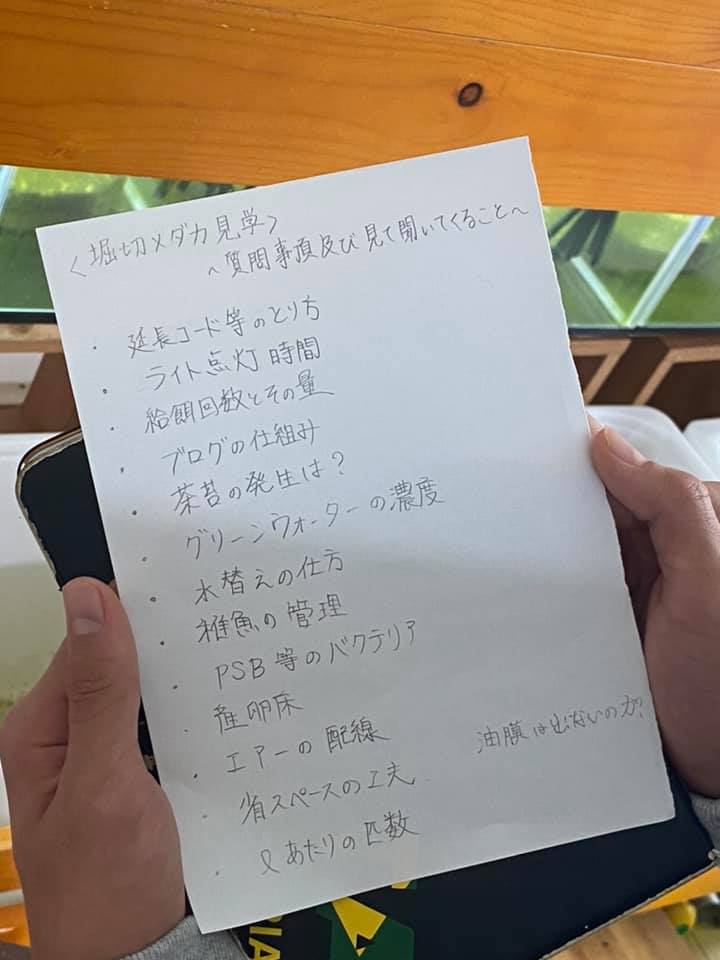 <堀切メダカ見学>
~質問事項及び見て聞いてくること~
・延長コード等のとり方
・ライト点灯時間
・給餌回数とその量
・ブログの仕組み
・茶苔の発生は?
・グリーンウォーターの濃度
・水替えの仕方
・稚魚の管理
・PSB等のバクテリア
・産卵床
・エアーの配線
・省スペースの工夫
・ℓあたりの匹数
油膜は出ないのか?